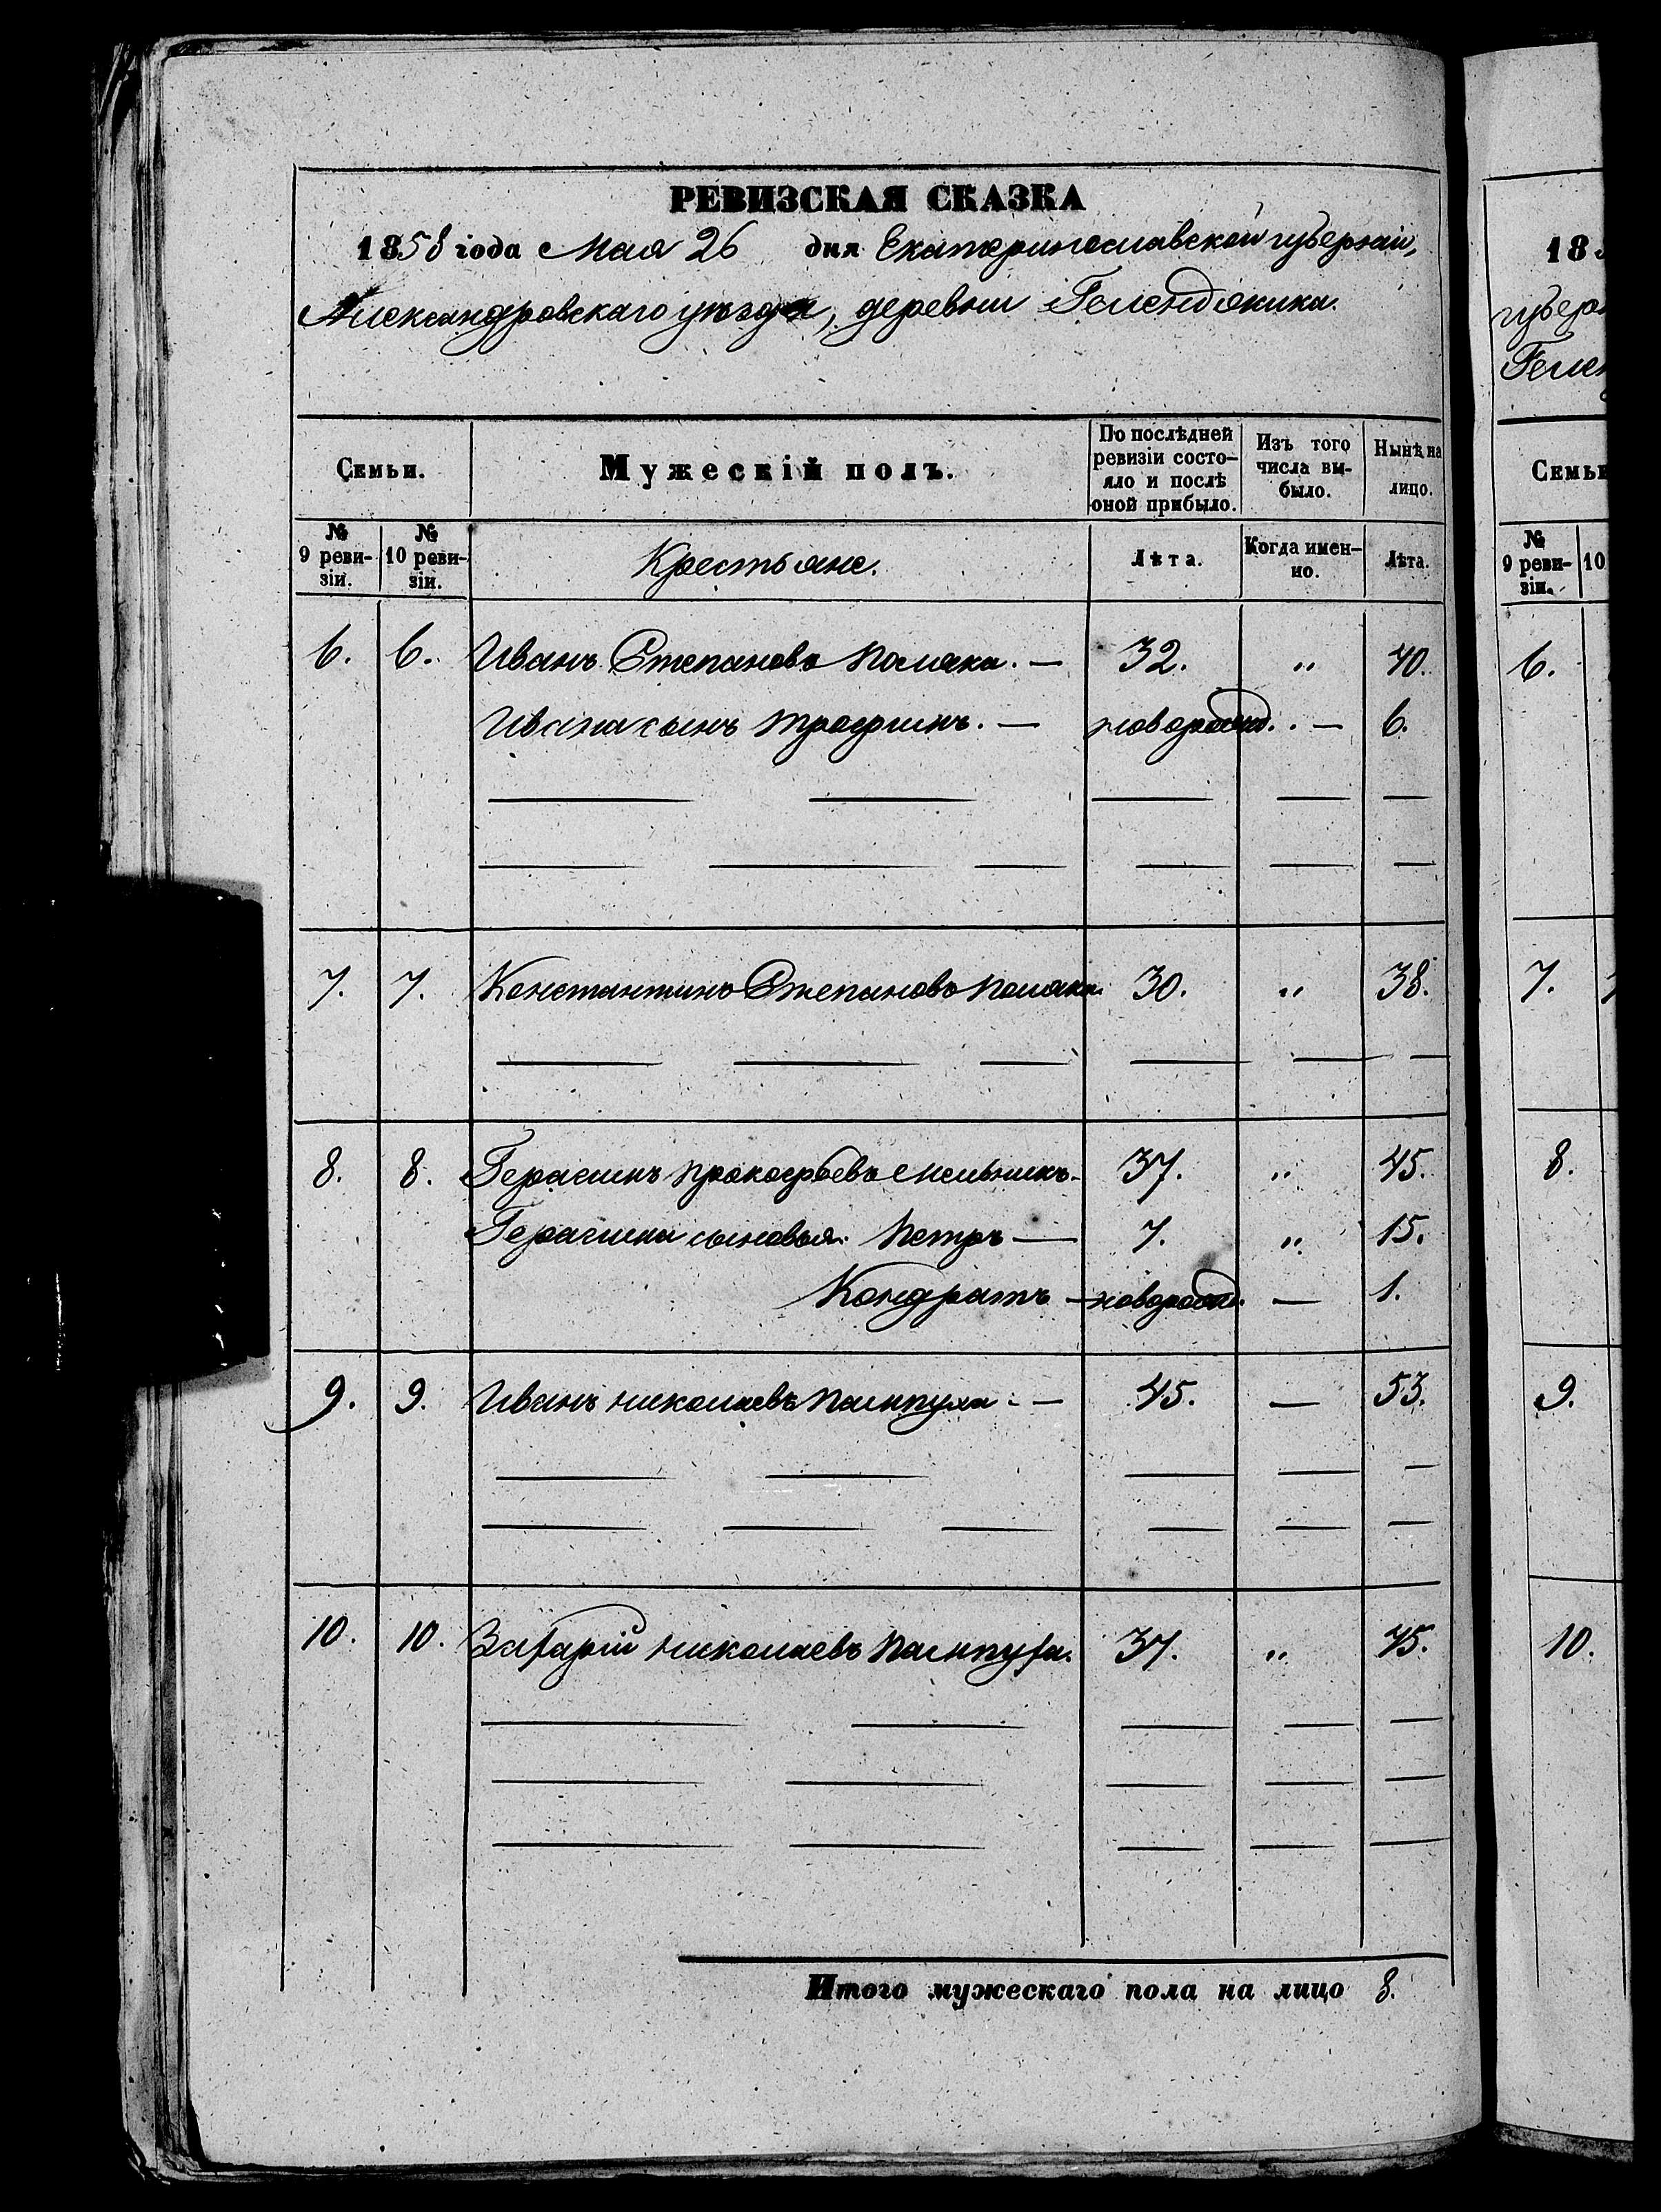 РЕВИЗСКАЯ СКАЗКА
1858 года Мая 26 дня Екатеринославской губернии,
Александровскаго уѣзда, деревни Геленджика.
Семьи. Мужескій полъ. По послѣдней ревизіи состо-яло и послѣ оной прибыло. Изъ того числа вы-было. Нынѣ на лицо.
№ 9 реви-зіи. № 10 реви-зіи. Крестьяне. Лѣта. Когда имен-но. Лѣта.
6. 6. Иванъ Степановъ Поляка. — 32. " 40.
Ивана сынъ Трофимъ. — новорожд. — 6.
7. 7. Константинъ Степановъ Поляка. 30. " 38.
8. 8. Герасимъ Прокофьевъ Мельникъ. 37. " 45.
Герасима сыновья: Петръ — 7. " 15.
Кондратъ — новорожд. — 1.
9. 9. Иванъ Николаевъ Пампуха. — 45. — 53.
10. 10. Захарій Николаевъ Пампуха. 37. " 45.
Итого мужескаго пола на лицо 8.
18
губер
Геле
Семьи
№ 9 реви-зіи. 10
6.
7.
8.
9.
10.